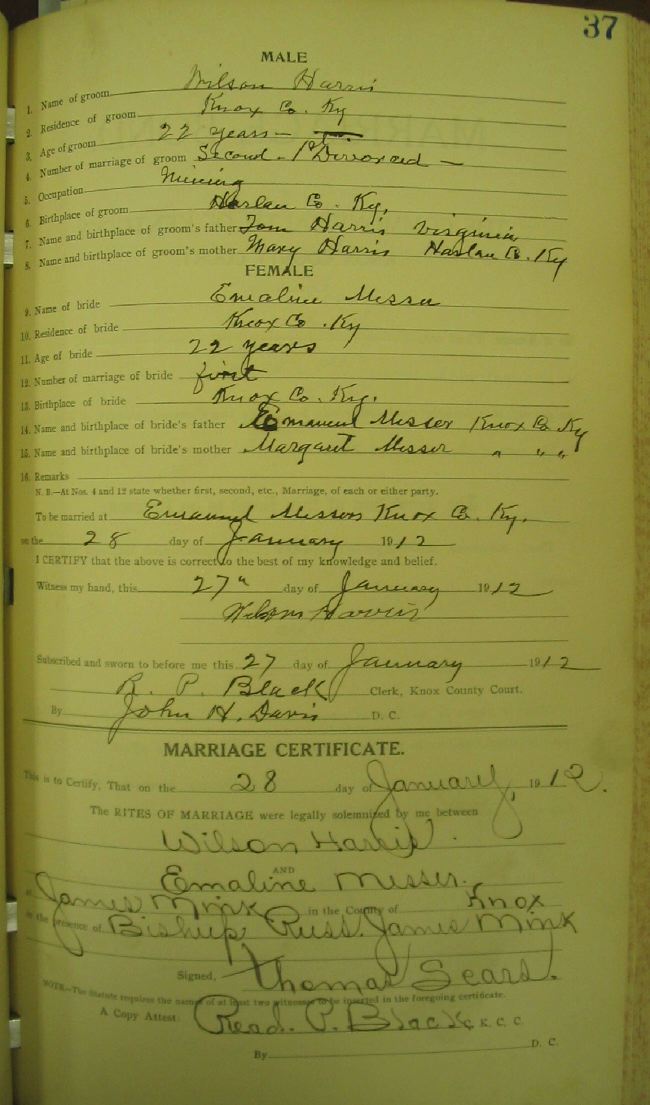 37
MALE
1. Name of groom Wilson Harris
2. Residence of groom Knox Co. Ky
3. Age of groom 22 years —
4. Number of marriage of groom Second - Divorced —
5. Occupation Mining
6. Birthplace of groom Harlan Co. Ky.
7. Name and birthplace of groom's father Tom Harris Virginia
8. Name and birthplace of groom's mother Mary Harris Harlan Co. Ky
FEMALE
9. Name of bride Emaline Messer
10. Residence of bride Knox Co. Ky
11. Age of bride 22 years
12. Number of marriage of bride first
13. Birthplace of bride Knox Co. Ky.
14. Name and birthplace of bride's father Emanuel Messer Knox Co Ky
15. Name and birthplace of bride's mother Margaret Messer " " "
16. Remarks
N. B.—At Nos. 4 and 12 state whether first, second, etc., Marriage, of each or either party.
To be married at Emanuel Messers Knox Co. Ky.
on the 28 day of January 1912
I CERTIFY that the above is correct to the best of my knowledge and belief.
Witness my hand, this 27" day of January 1912
Wilson Harris
Subscribed and sworn to before me this 27 day of January 1912
R. P. Black Clerk, Knox County Court.
By John H. Davis D. C.
MARRIAGE CERTIFICATE.
This is to Certify, That on the 28 day of January, 1912.
The RITES OF MARRIAGE were legally solemnized by me between
Wilson Harris.
AND
Emaline Messer.
at James Mink in the County of Knox
in the presence of Bishup Russ. James Mink
Signed, Thomas Sears.
NOTE.—The Statute requires the names of at least two witnesses to be inserted in the foregoing certificate.
A Copy Attest: Read. P. Black K. C. C.
By D. C.